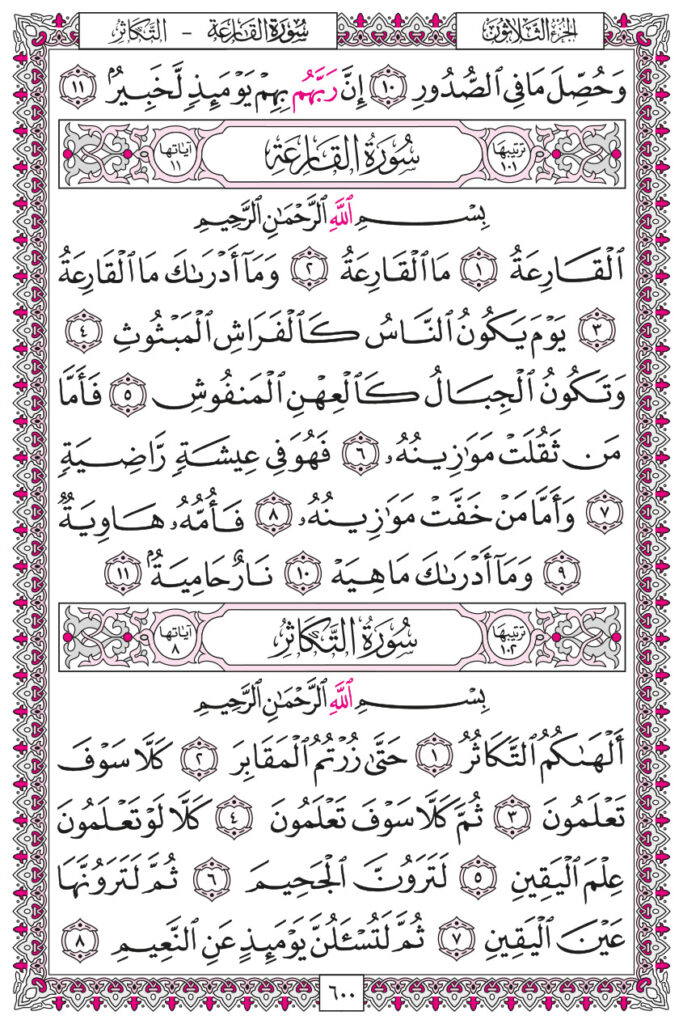 الجزء الثلاثون
سورة القارعة - التكاثر
وَحُصِّلَ مَا فِي ٱلصُّدُورِ ١٠ إِنَّ رَبَّهُم بِهِمْ يَوْمَئِذٍ لَّخَبِيرٌۢ ١١
ترتيبها ١٠١ سُورَةُ القَارِعَةِ آياتها ١١
بِسْمِ ٱللَّهِ ٱلرَّحْمَٰنِ ٱلرَّحِيمِ
ٱلْقَارِعَةُ ١ مَا ٱلْقَارِعَةُ ٢ وَمَآ أَدْرَىٰكَ مَا ٱلْقَارِعَةُ
٣ يَوْمَ يَكُونُ ٱلنَّاسُ كَٱلْفَرَاشِ ٱلْمَبْثُوثِ ٤
وَتَكُونُ ٱلْجِبَالُ كَٱلْعِهْنِ ٱلْمَنفُوشِ ٥ فَأَمَّا
مَن ثَقُلَتْ مَوَٰزِينُهُۥ ٦ فَهُوَ فِي عِيشَةٍ رَّاضِيَةٍ
٧ وَأَمَّا مَنْ خَفَّتْ مَوَٰزِينُهُۥ ٨ فَأُمُّهُۥ هَاوِيَةٌ
٩ وَمَآ أَدْرَىٰكَ مَا هِيَهْ ١٠ نَارٌ حَامِيَةٌۢ ١١
ترتيبها ١٠٢ سُورَةُ التَّكَاثُرِ آياتها ٨
بِسْمِ ٱللَّهِ ٱلرَّحْمَٰنِ ٱلرَّحِيمِ
أَلْهَىٰكُمُ ٱلتَّكَاثُرُ ١ حَتَّىٰ زُرْتُمُ ٱلْمَقَابِرَ ٢ كَلَّا سَوْفَ
تَعْلَمُونَ ٣ ثُمَّ كَلَّا سَوْفَ تَعْلَمُونَ ٤ كَلَّا لَوْ تَعْلَمُونَ
عِلْمَ ٱلْيَقِينِ ٥ لَتَرَوُنَّ ٱلْجَحِيمَ ٦ ثُمَّ لَتَرَوُنَّهَا
عَيْنَ ٱلْيَقِينِ ٧ ثُمَّ لَتُسْـَٔلُنَّ يَوْمَئِذٍ عَنِ ٱلنَّعِيمِ ٨
٦٠٠